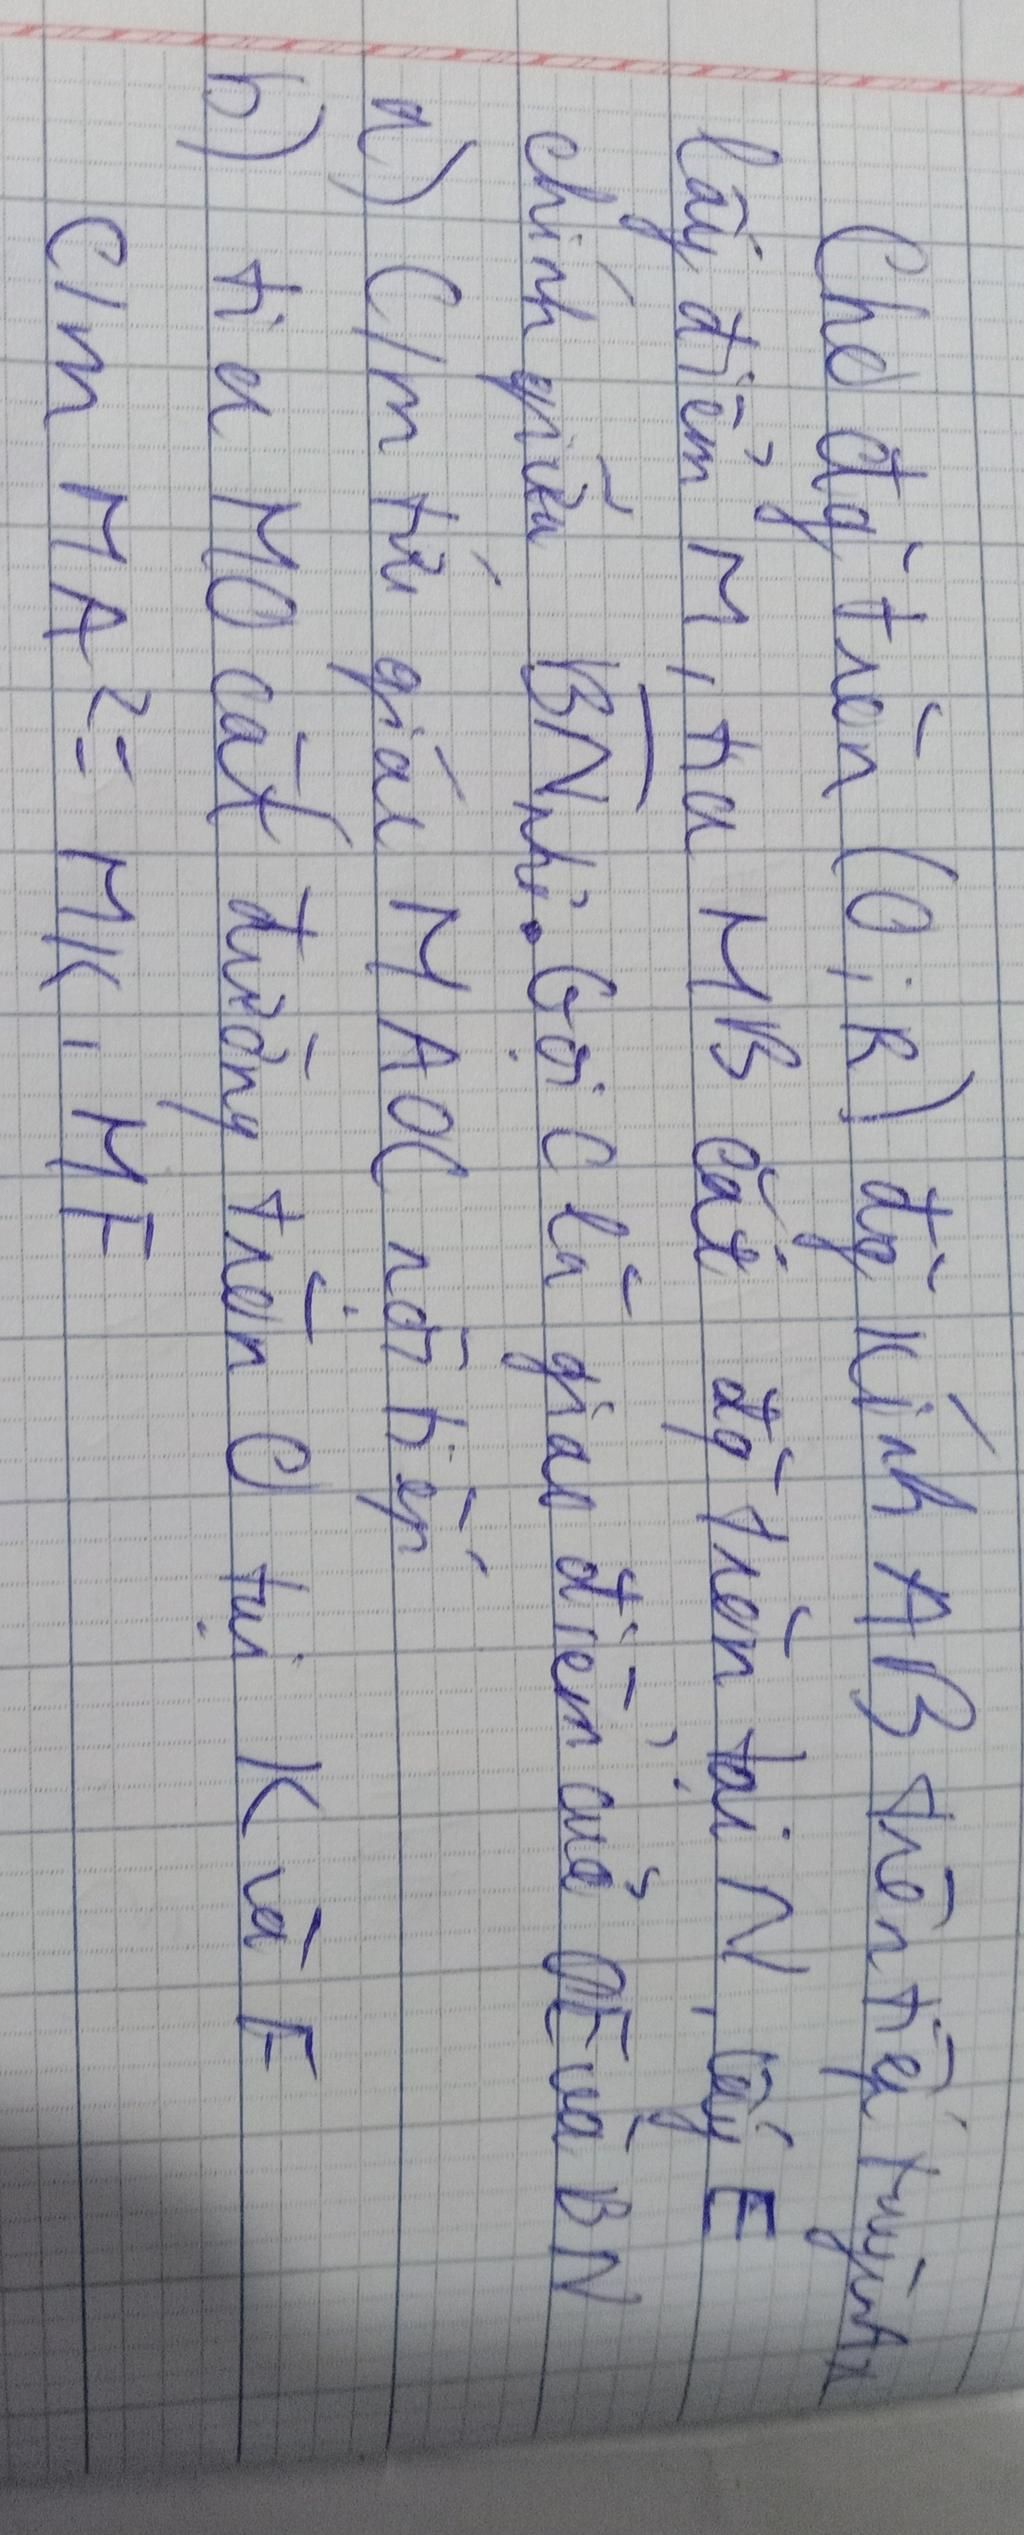 Cho đg tròn (O;R) đg Kính AB trên tiếp tuyến Ax
lấy điểm M, tia MB cắt đg tròn tại N, lấy E
chính giữa BN nhỏ. Gọi C là giao điểm của OE và BN
a) C/m tứ giác MAOC nội tiếp
b) tia MO cắt đường tròn O tại K và F
C/m MA² = MK, MF